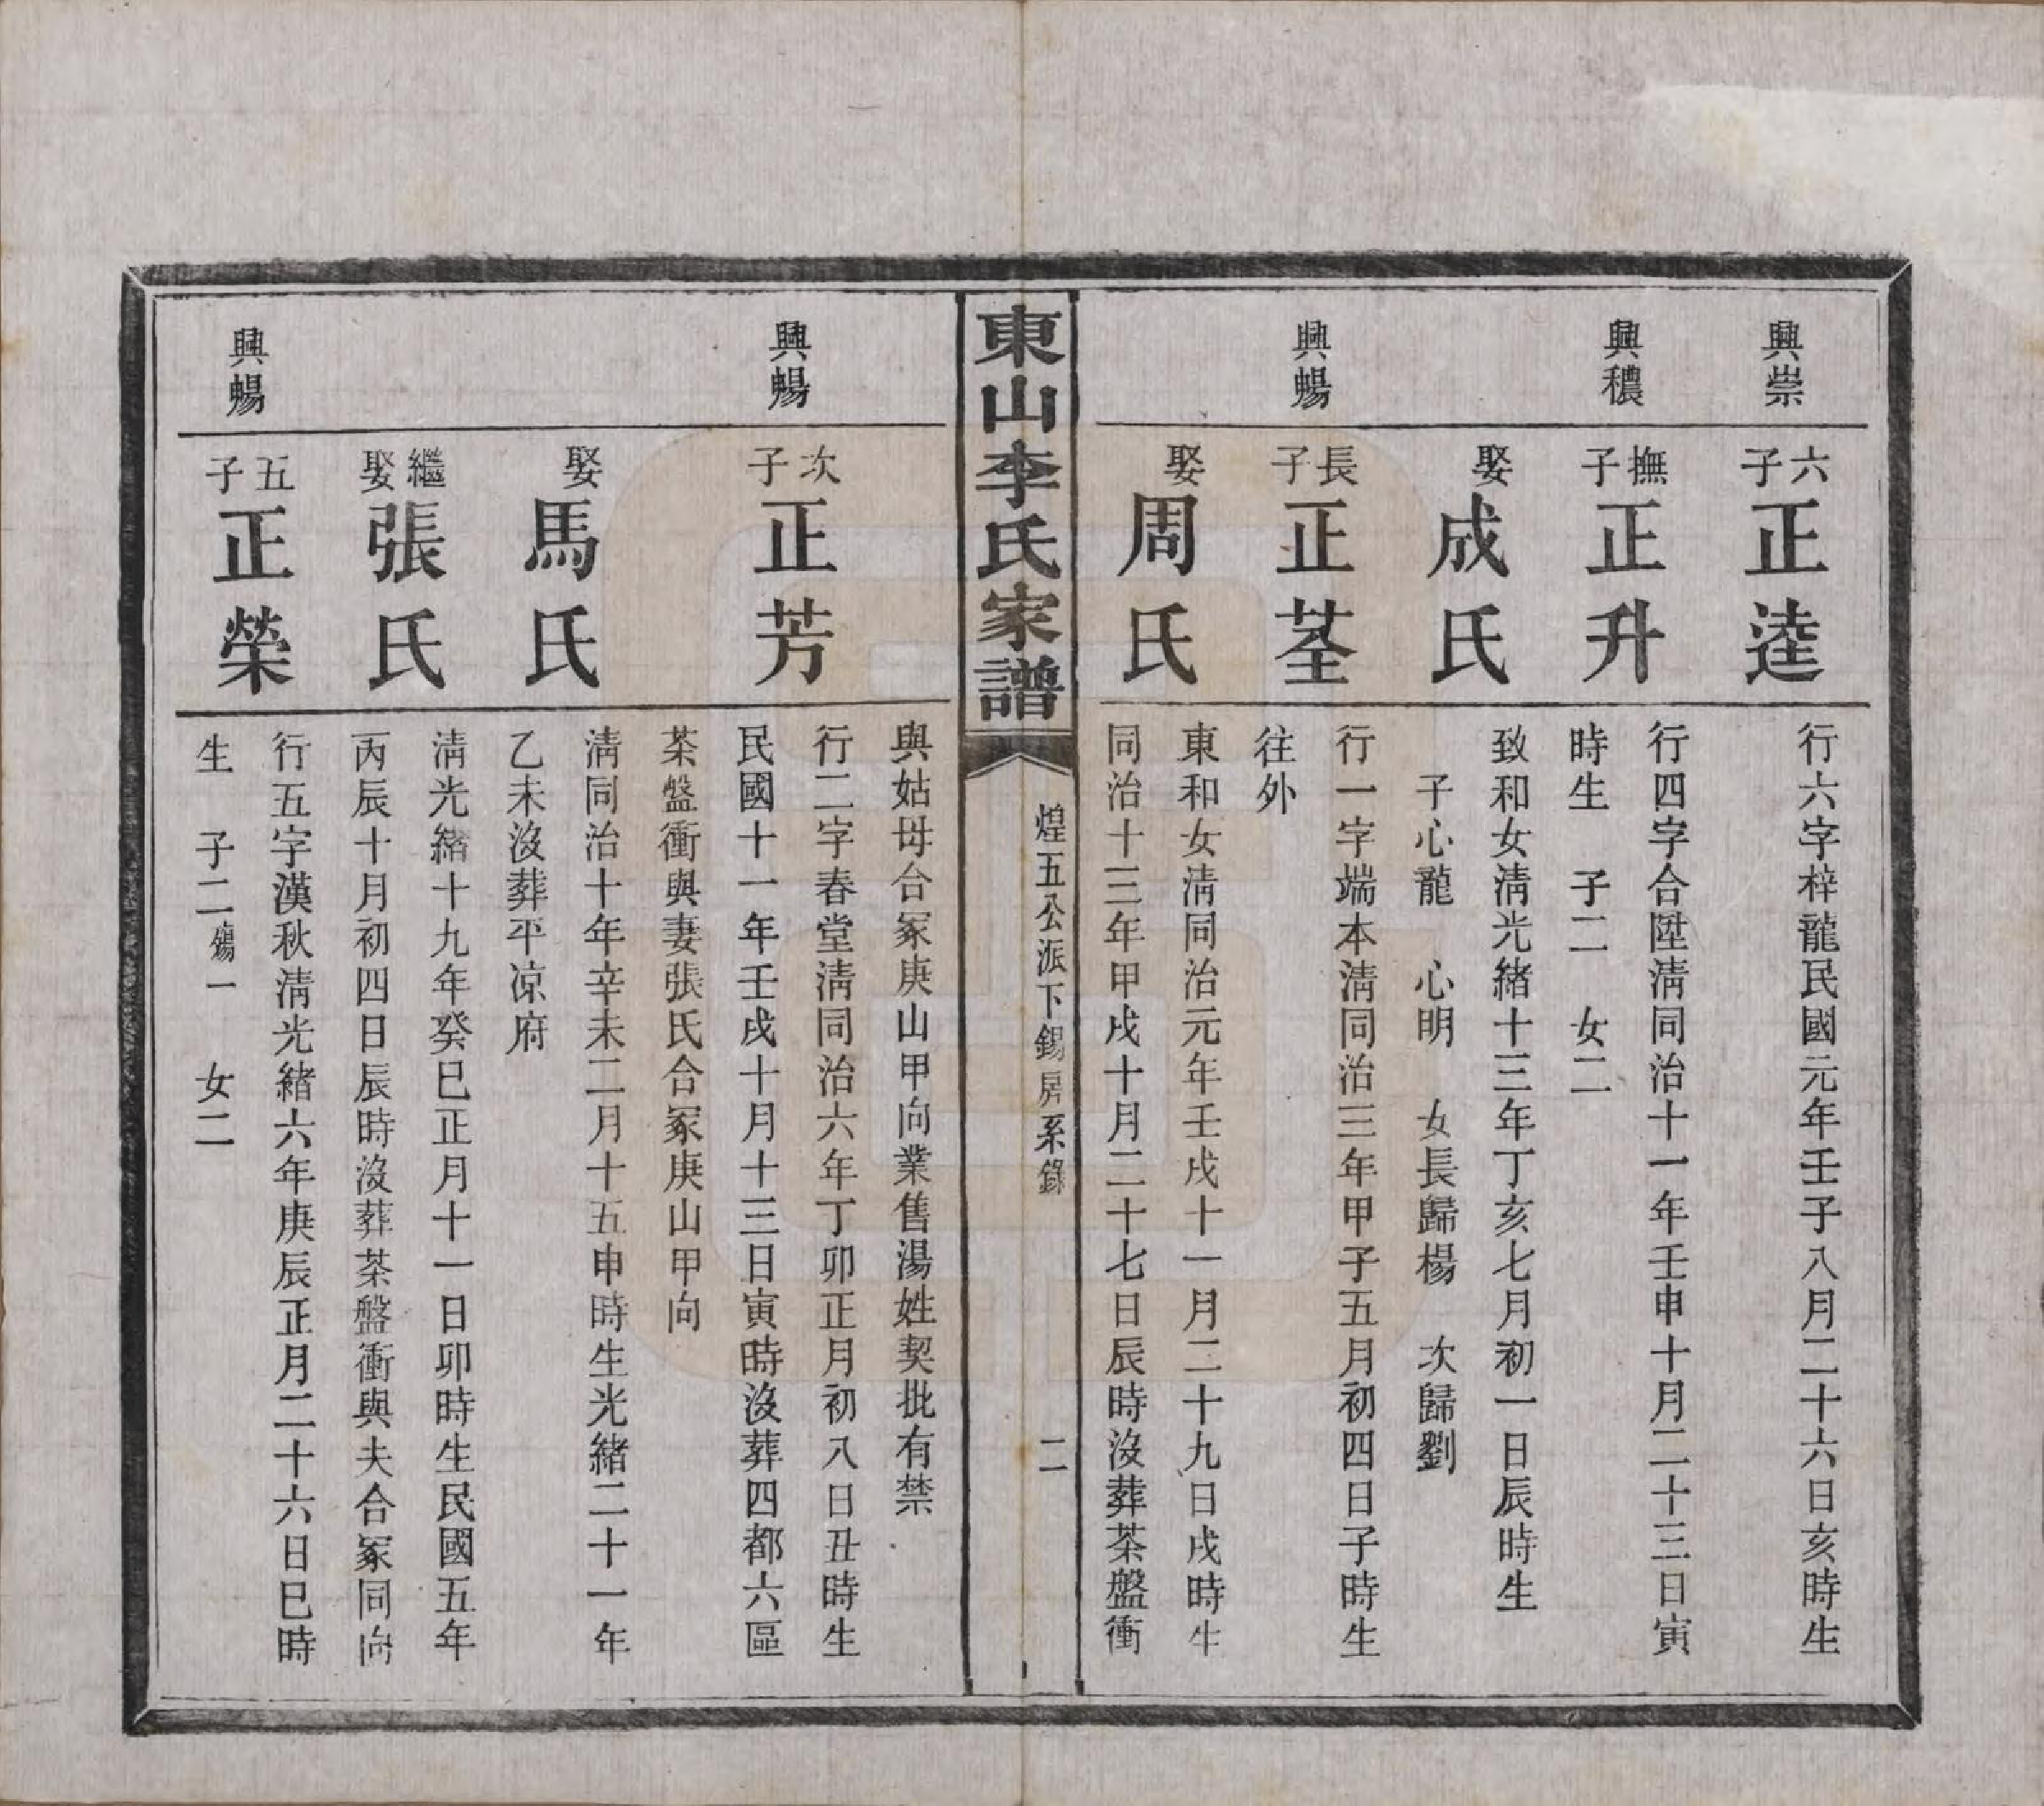 興崇
六子正逵
行六字梓龍民國元年壬子八月二十六日亥時生
興穠
撫子正升
行四字合陞清同治十一年壬申十月二十三日寅
時生　子二　女二
娶成氏
致和女清光緒十三年丁亥七月初一日辰時生
子心龍　心明　女長歸楊　次歸劉
興暢
長子正荃
行一字端本清同治三年甲子五月初四日子時生
往外
娶周氏
東和女清同治元年壬戌十一月二十九日戌時生
同治十三年甲戌十月二十七日辰時沒葬茶盤衝
東山李氏家譜
煌五公派下錫房系錄
二
與姑毋合冢庚山甲向業售湯姓契批有禁
興暢
次子正芳
行二字春堂清同治六年丁卯正月初八日丑時生
民國十一年壬戌十月十三日寅時沒葬四都六區
茶盤衝與妻張氏合冢庚山甲向
娶馬氏
清同治十年辛未二月十五申時生光緒二十一年
乙未沒葬平凉府
繼娶張氏
清光緒十九年癸巳正月十一日卯時生民國五年
丙辰十月初四日辰時沒葬茶盤衝與夫合冢同向
興暢
五子正榮
行五字漢秋清光緒六年庚辰正月二十六日巳時
生　子二殤一　女二